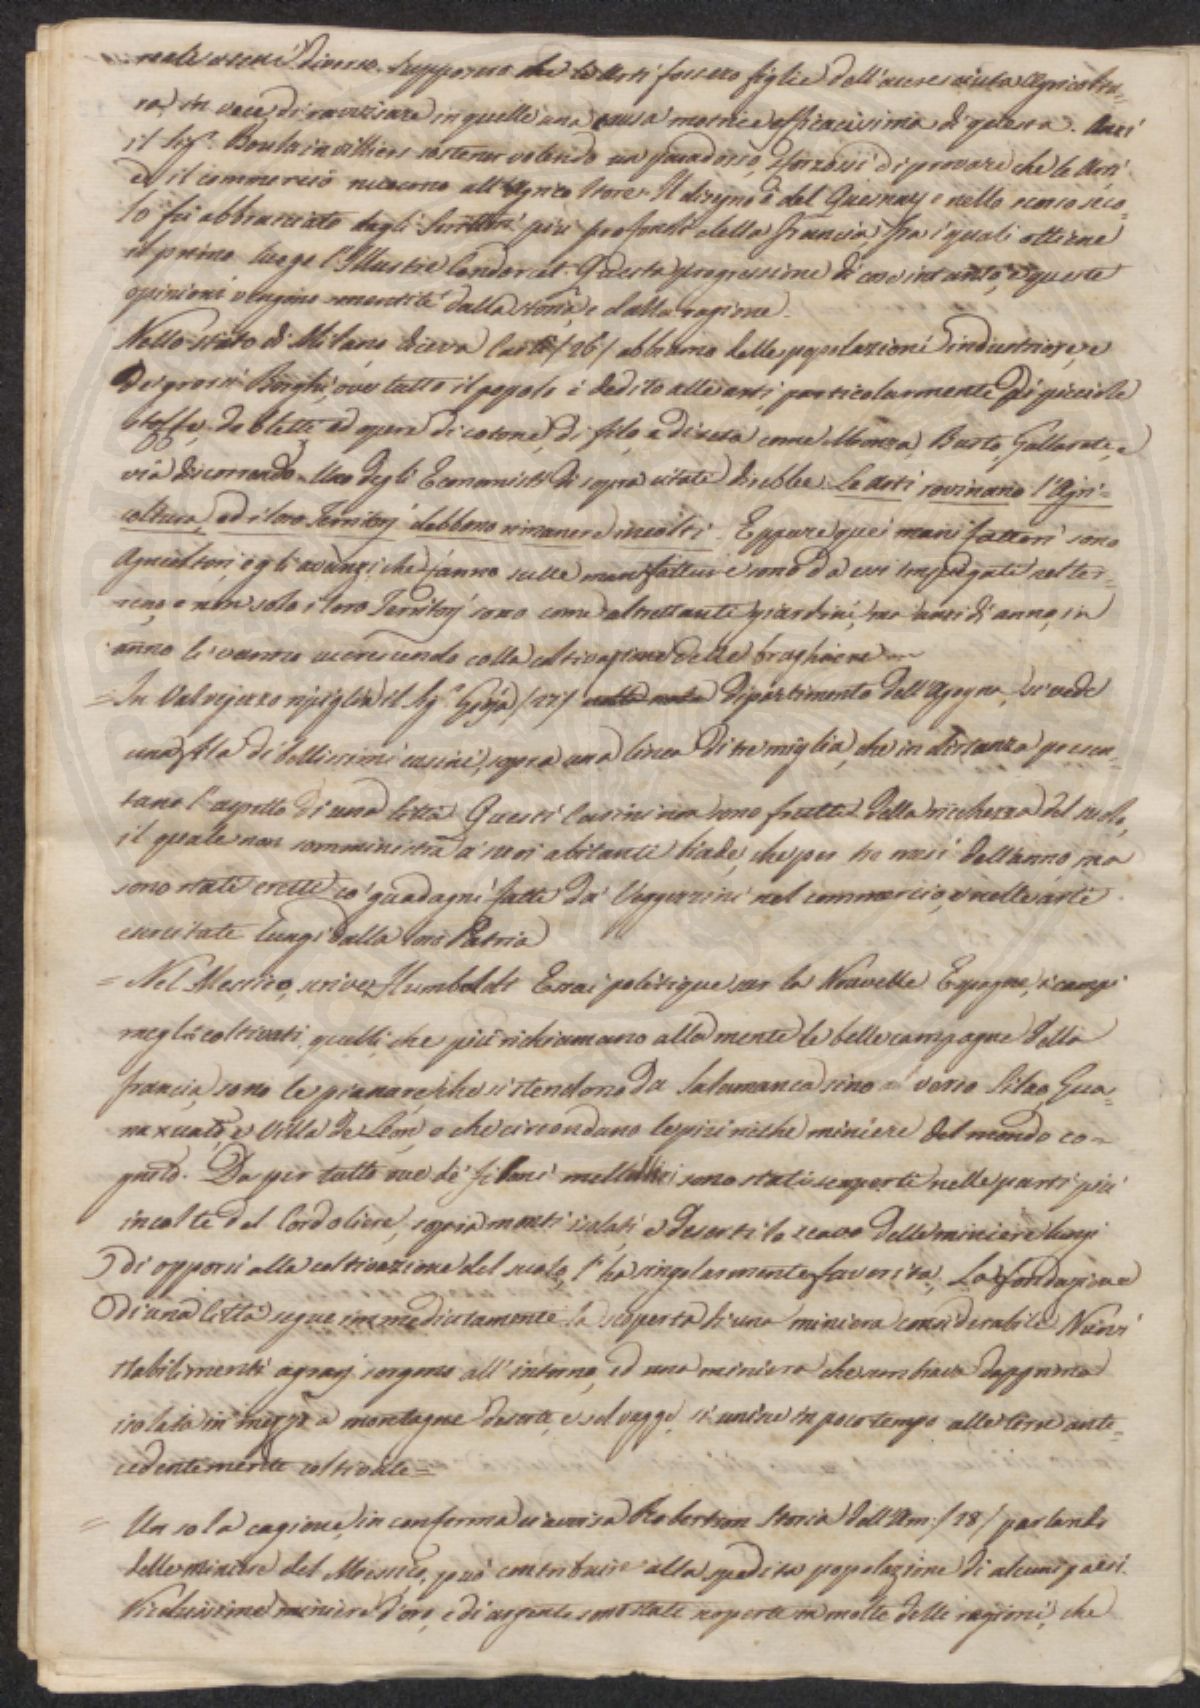 reale assai diverso. Supposero che le Arti fossero figlie dell'accresciuta Agricoltu=
ra, in vece di ravvisare in quelle una causa motrice efficacissima di questa. Anzi
il Sigr. Boulainvilliers sostener volendo un paradosso, sforzossi di provare che le Arti
ed il commercio nuocono all'Agricoltore. Il disegno è del Quesnay e nello scorso seco=
lo fù abbracciato dagli Scrittori più profondi della Francia, fra i quali ottiene
il primo luogo l'Illustre Condorcet. Questa progressione di cose intanto, e queste
opinioni vengono smentite dalla storia e dalla ragione.
Nello stato di Milano diceva Carli /26/ abbiamo delle popolazioni industriose, e
de' grossi Borghi, ove tutto il popolo è dedito alle arti, particolarmente di picciole
stoffe, di blette ed opere di cotone, di filo, e di seta come Monza, Busto, Gallarate, e
via discorrendo. Uno degli Economisti di sopra citati direbbe: Le Arti rovinano l'Agri=
coltura, ed i loro Territorj debbono rimanere incolti. Eppure quei manifattori sono
Agricoltori, e gli avanzi, che fanno sulle manifatture sono da essi impiegati nel ter=
reno, e non solo i loro Territorj sono come altrettanti giardini, ma anzi di anno, in
anno li vanno accrescendo colla coltivazione delle braghiere
= In Valvigezzo ripiglia il Sigr. Gioja /27/ Dipartimento dell'Agogna, si vede
una fila di bellissimi casini, sopra una linea di tre miglia, che in distanza presen=
tano l'aspetto di una Città. Questi Casini non sono frutti della ricchezza del suolo,
il quale non somministra a' suoi abitanti biade, che per tre mesi dell'anno, ma
sono stati eretti co' guadagni fatti da' Veggezzini nel commercio, e nelle arti
esercitate lungi dalla loro Patria
= Nel Messico, scrive Humboldt Essai politique sur la Nouvelle Espagne, i campi
meglio coltivati, quelli, che più richiamano alla mente le belle campagne della
francia, sono le pianure, che si stendono da Salamanca sino a verso Silao, Gua=
naxuato, e Villa de Leon, e che circondano le più ricche miniere del mondo co=
gnito. Da per tutto ove de' filoni metallici sono stati scoperti nelle parti più
incolte del Cordoliere, sopra monti isolati, e deserti lo scavo delle miniere lungi
di opporsi alla coltivazione del suolo, l'ha singolarmente favorita. La fondazione
di una Città segue immediatamente la scoperta di una miniera considerabile. Nuovi
stabilimenti agrarj sorgono all'intorno, ed una miniera che sembrava dapprima
isolata in mezzo a montagne deserte, e selvagge, si unisce in poco tempo alle terre ante=
cedentemente coltivate =
= Un sola cagione, in conferma ci avvisa Robertson Storia dell'Am: /28/ parlando
delle miniere del Messico, può contribuire alla spedita popolazione di alcuni paesi.
Ricchissime miniere d'oro, e di argento sono state scoperte in molte delle ragioni, che